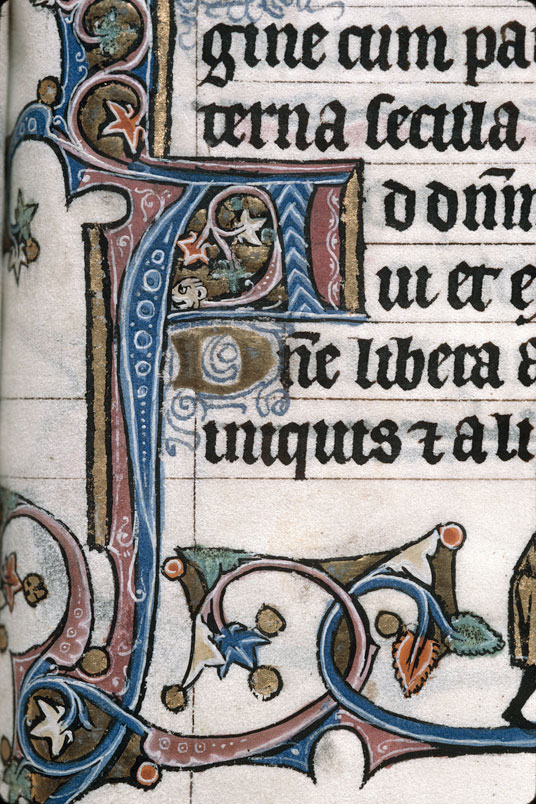 gine cum pa
terna secula
Ad dn̄m
iui et e
Dn̄e libera a
iniquis ⁊ a li